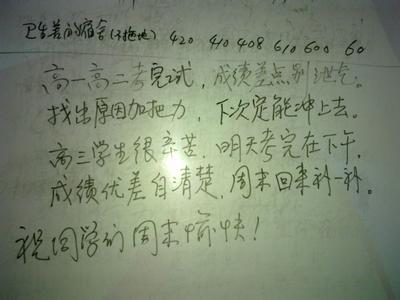 卫生差的宿舍(不拖地) 420 410 408 610 600 60
高一高二考完试，成绩差点别泄气。
找出原因加把力，下次定能冲上去。
高三学生很辛苦，明天考完在下午，
成绩优差自清楚，周末回来补一补。
祝同学们周末愉快！